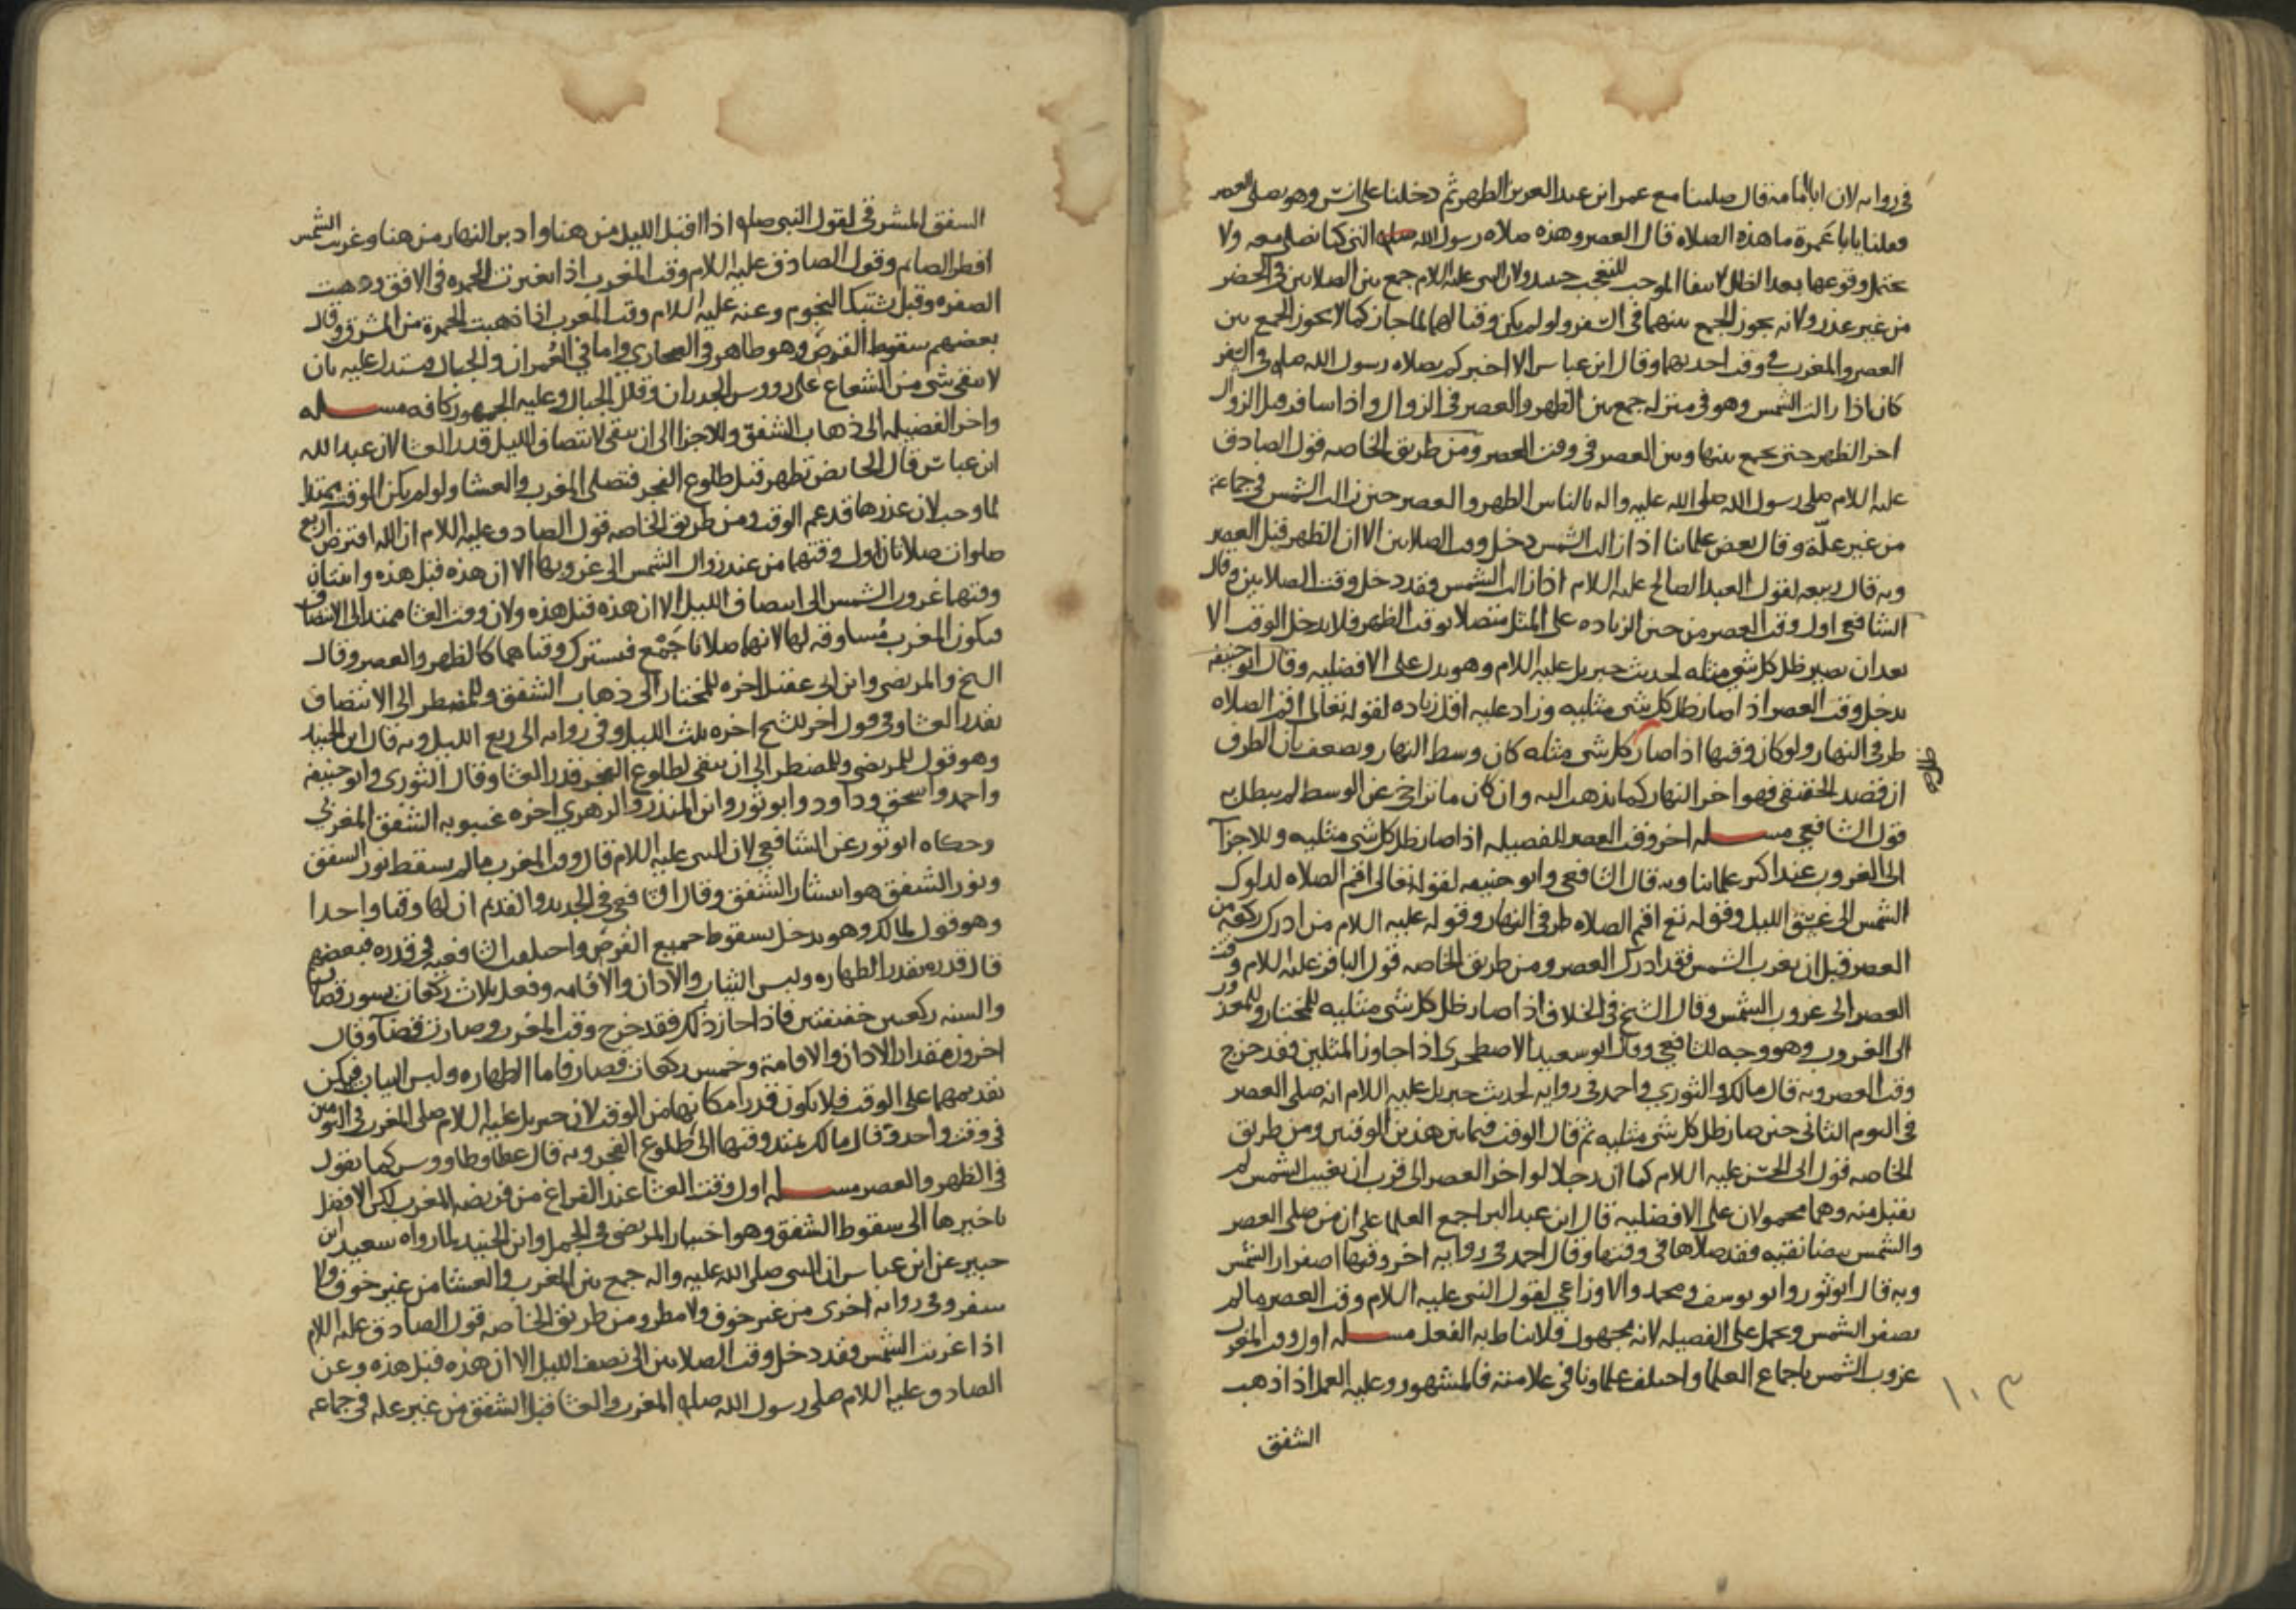 في رواية لان ابا امامه قال صلينا مع عمر ابن عبد العزيز الظهر ثم دخلنا على انس وهو يصلي العصر
فقلنا يابا عمرة ما هذه الصلاه قال العصر وهذه صلاه رسول الله صلى التي كنا نصلي معه ولا
يحتمل وقوعها بعد الظل لانتفا الموجب للتعجب حينئذ ولان النبي عليه اللام جمع بين الصلاتين في الحضر
من غير عذر ولانه يجوز الجمع بينهما في السفر ولو لم يكن وقتا لهما لما جاز كما لا يجوز الجمع بين
العصر والمغرب في وقت احديهما وقال ابن عباس الا اخبركم بصلاه رسول الله صلى في السفر
كان اذا زالت الشمس وهو في منزله جمع بين الظهر والعصر في الزوال واذا سافر قبل الزوال
اخر الظهر حتى يجمع بينها وبين العصر في وقت العصر ومن طريق الخاصه قول الصادق
عليه اللام صلى رسول الله صلى الله عليه واله بالناس الظهر والعصر حين زالت الشمس في جماعة
من غير علّة وقال بعض علمائنا اذا زالت الشمس دخل وقت الصلاتين الا ان الظهر قبل العصر
وبه قال ربيعه لقول العبد الصالح عليه اللام اذا زالت الشمس فقد دخل وقت الصلاتين وقال
الشافعي اول وقت العصر من حين الزياده على المثل متصلا بوقت الظهر فلا يدخل الوقت الا
بعد ان يصير ظل كل شي مثله لحديث جبريل عليه اللام وهو يدل على الافضليه وقال ابو حنيفه
يدخل وقت العصر اذا صار ظل كل شي مثليه وزاد عليه اقل زياده لقوله تعالى اقم الصلاه
طرفي النهار ولو كان وقتها اذا صار كل شي مثله كان وسط النهار ويضعف بان الطرف
ان قصد الحقيقي فهو اخر النهار كما نذهب اليه وان كان ما تراخى عن الوسط لم يبطل به
قول الشافعي مسله اخر وقت العصر للفضيله اذا صار ظل كل شي مثليه وللاجزآ
الى الغروب عند اكثر علمائنا وبه قال الشافعي وابو حنيفه لقوله تعالى اقم الصلاه لدلوك
الشمس الى غسق الليل وقوله تع اقم الصلاه طرفي النهار وقوله عليه اللام من ادرك ركعه من
العصر قبل ان يغرب الشمس فقد ادرك العصر ومن طريق الخاصه قول الباقر عليه اللام وقت
العصر الى غروب الشمس وقال الشيخ في الخلاف اذا صار ظل كل شي مثليه للمختار وللمعذور
الى الغروب وهو وجه للشافعي وقال ابو سعيد الاصطخري اذا جاوز المثلين فقد خرج
وقت العصر وبه قال مالك والثوري واحمد في رواية لحديث جبريل عليه اللام انه صلى العصر
في اليوم الثاني حين صار ظل كل شي مثليه ثم قال الوقت فيما بين هذين الوقتين ومن طريق
الخاصه قول ابي الحسن عليه اللام كما ان رجلا لو اخر العصر الى قرب ان تغيب الشمس لم
يقبل منه وهما محمولان على الافضليه قال ابن عبد البر اجمع العلما على ان من صلى العصر
والشمس بيضا نقيه فقد صلاها في وقتها وقال احمد في رواية اخر وقتها اصفرار الشمس
وبه قال ابو ثور وابو يوسف ومحمد والاوزاعي لقول النبي عليه اللام وقت العصر ما لم
يصفر الشمس ويحمل على الفضيله لانه مجهول فلا يناط به الفعل مسله اول وقت المغرب
غروب الشمس باجماع العلما واختلف علماونا في علامته فالمشهور وعليه العمل اذا ذهب
الشفق
١٠٣
الشفق المشرقي لقول النبي صلى اذا اقبل الليل من هنا وادبر النهار من هنا وغربت الشمس
افطر الصايم وقول الصادق عليه اللام وقت المغرب اذا تغيرت الحمره في الافق وذهبت
الصفره وقبل تشتبك النجوم وعنه عليه اللام وقت المغرب اذا ذهبت الحمرة من المشرق وقال
بعضهم سقوط القرص وهو ظاهر في الصحاري واما في العمران والجبال فيستدل عليه بان
لا يبقى شي من الشعاع على رووس الجدران وقلل الجبال وعليه الجمهور كافه مسله
واخر الفضيله الى ذهاب الشفق وللاجزا الى ان يبقى لانتصاف الليل قدر العشا لان عبد الله
ابن عباس قال الحايض تطهر قبل طلوع الفجر فتصلي المغرب والعشا ولو لم يكن الوقت ممتدا
لما وجب لان عذرها قد عم الوقت ومن طريق الخاصه قول الصادق عليه اللام ان الله افترض اربع
صلوات صلاتان اول وقتهما من عند زوال الشمس الى غروبها الا ان هذه قبل هذه واثنتان
وقتهما غروب الشمس الى انتصاف الليل الا ان هذه قبل هذه ولان وقت العشا ممتد الى الانتصاف
فيكون المغرب مساوقه لها لانهما صلاتا جمع فيشترك وقتاهما كالظهر والعصر وقال
الشيخ والمرتضى وابن ابي عقيل اخره للمختار الى ذهاب الشفق وللمضطر الى الانتصاف
بقدر العشا وفي قول اخر للشيخ اخره ثلث الليل وفي رواية الى ربع الليل وبه قال ابن الجنيد
وهو قول للمرتضى وللمضطر الى ان يبقى لطلوع الفجر قدر العشا وقال الثوري وابو حنيفه
واحمد واسحق وداود وابو ثور وابن المنذر والزهري اخره غيبوبه الشفق المغربي
وحكاه ابو ثور عن الشافعي لان النبي عليه اللام قال وقت المغرب ما لم يسقط ثور الشفق
وثور الشفق هو انتشار الشفق وقال الشافعي في الجديد والقديم ان لها وقتا واحدا
وهو قول لمالك وهو يدخل بسقوط جميع القرص واختلفت الشافعيه في قدره فبعضهم
قال قدره بقدر الطهاره ولبس الثياب والاذان والاقامه وفعل ثلاث ركعات بسور قصار
والسنه ركعتين خفيفتين فاذا جاز ذلك فقد خرج وقت المغرب وصارت قضآ وقال
اخرون مقدار الاذان والاقامة وخمس ركعات قصار فاما الطهاره ولبس الثياب فيمكن
تقديمهما على الوقت فلا يكون قدر امكانهما من الوقت لان جبريل عليه اللام صلى المغرب في اليومين
في وقت واحد وقال مالك يمتد وقتها الى طلوع الفجر وبه قال عطا وطاووس كما نقول
في الظهر والعصر مسله اول وقت العشا عند الفراغ من فريضه المغرب لكن الافضل
تاخيرها الى سقوط الشفق وهو اختيار المرتضى في الجمل وابن الجنيد لما رواه سعيد ابن
جبير عن ابن عباس ان النبي صلى الله عليه واله جمع بين المغرب والعشا من غير خوف ولا
سفر وفي رواية اخرى من غير خوف ولا مطر ومن طريق الخاصه قول الصادق عليه اللام
اذا غربت الشمس فقد دخل وقت الصلاتين الى نصف الليل الا ان هذه قبل هذه وعن
الصادق عليه اللام صلى رسول الله صلى المغرب والعشا قبل الشفق من غير عله في جماعه